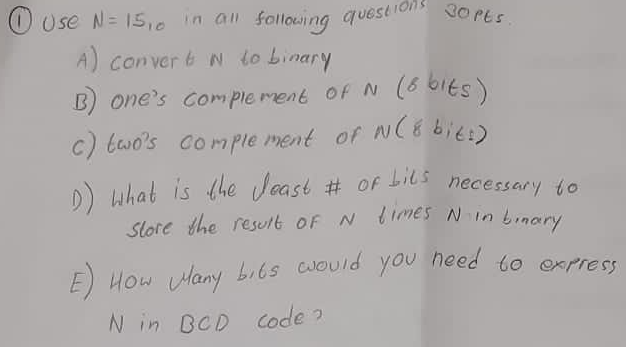 ① Use N = 15₁₀ in all following questions 30 pts.
A) convert N to binary
B) one's complement of N (8 bits)
C) two's complement of N (8 bits)
D) What is the least # of bits necessary to
store the result of N times N in binary
E) How Many bits would you need to express
N in BCD code?